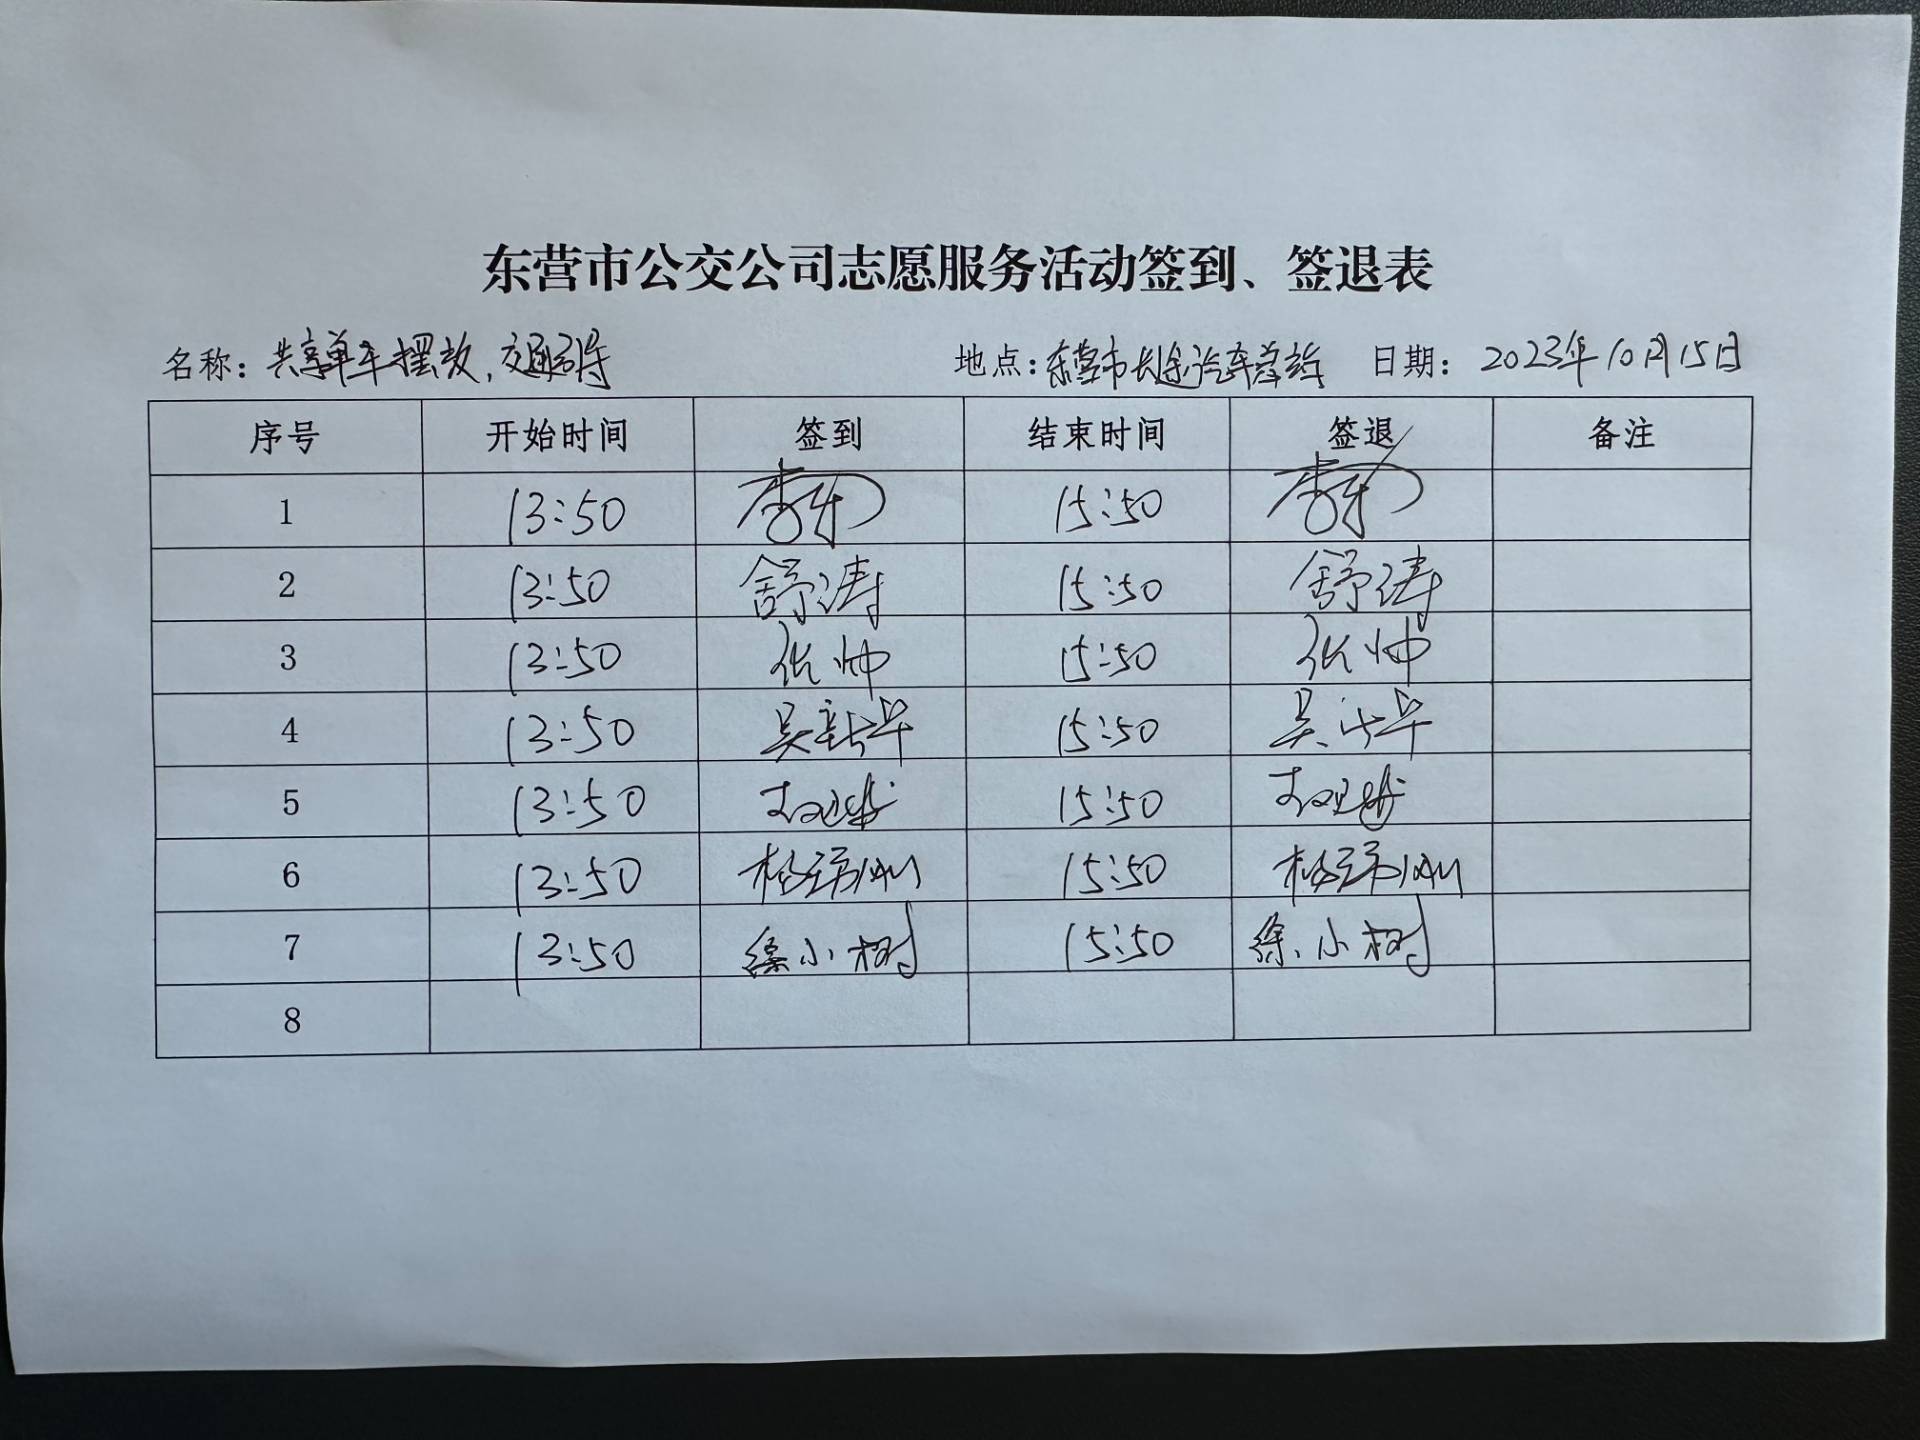 东营市公交公司志愿服务活动签到、签退表
名称：共享单车摆放，交通引导 地点：东营市长途汽车总站 日期：2023年10月15日
序号 开始时间 签到 结束时间 签退 备注
1 13:50 李 15:50 李
2 13:50 舒涛 15:50 舒涛
3 13:50 张帅 15:50 张帅
4 13:50 吴新华 15:50 吴新华
5 13:50 15:50
6 13:50 15:50
7 13:50 徐小树 15:50 徐小树
8